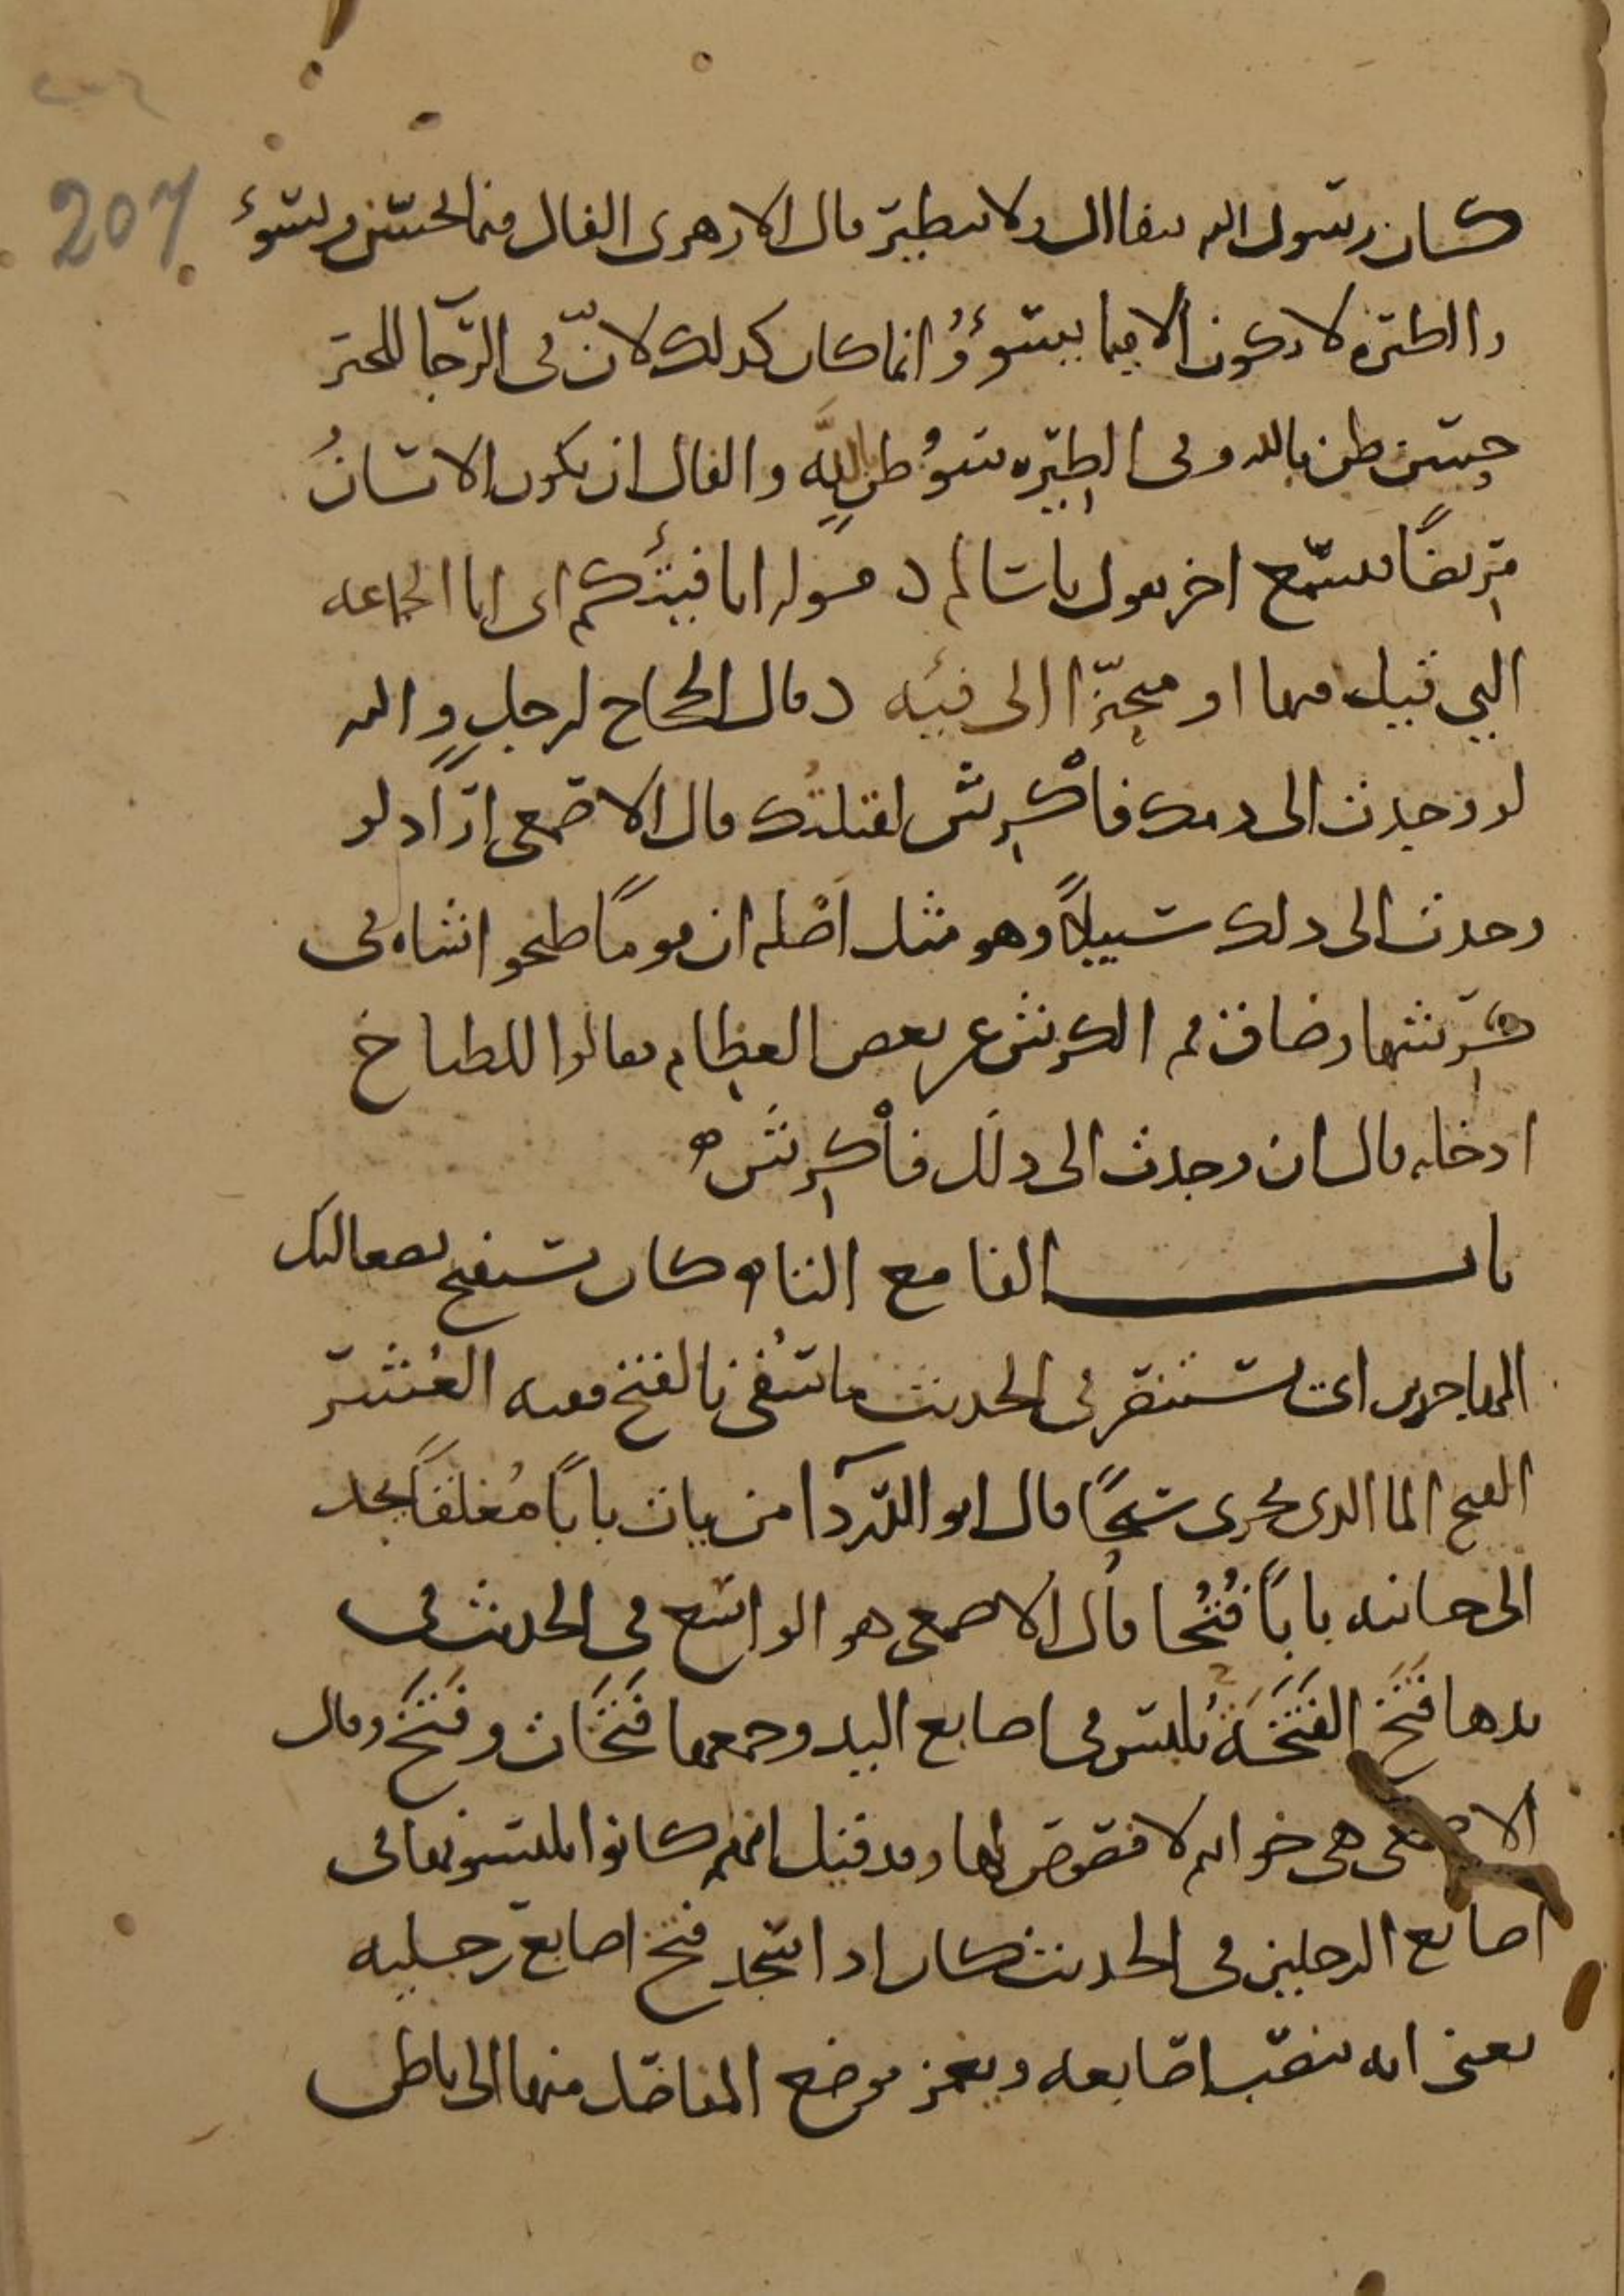 207
كان رسول الله يتفاال ولا يتطير قال الازهري الفال فيما يحسن ويسوء
واالطيره لا تكون الا فيما يسوءُ وانما كان كذلك لانّ في الرجآ للخير
حسن ظن بالله وفي الطيره سوُ ظنٍ بالله والفال ان يكون الانسانُ
مريضًا فيسمع اخر يقول ياسالم د قوله انا فيئتكم اى انا الجماعه
التي قيل فيها او متحيّزًا الى فيئه د قال الحجاج لرجلٍ والله
لو وجدت الى دمك فاكْرِش لقتلتُك قال الاصمعي ارَاد لو
وجدت الى ذلك سبيلًا وهو مثل اصْله ان قومًا طبخو اشاه في
كرِشها وضاق فم الكرش عن بعض العظام فقالوا للطباخ
ادخله قال ان وجدت الى ذلك فاكْرِش ه
باب الفا مع التا ه كان يستفتح بصعاليك
المهاجرين اى يستنصر في الحديث ما سُقي بالفتح ففيه العُشر
الفتح الما الذي يجرى سيحًا قال ابو الدردآ من يات بابًا مُغلقًا يجد
الى جانبه بابًا فُتُحا قال الاصمعي هو الواسع في الحديث في
يدها فَتَخ الفَتَخَة تُلبس في اصابع اليد وجمعها فَتَخَات وفَتَخ وقال
الاصمعي هي خواتم لا فصوص لها وقد قيل انهم كانوا يلبسونها في
اصابع الرجلين في الحديث كان اذا سجد فتخ اصابع رجليه
يعنى انه ينصب اصابعه ويغمز موضع المفاصل منها الى باطن